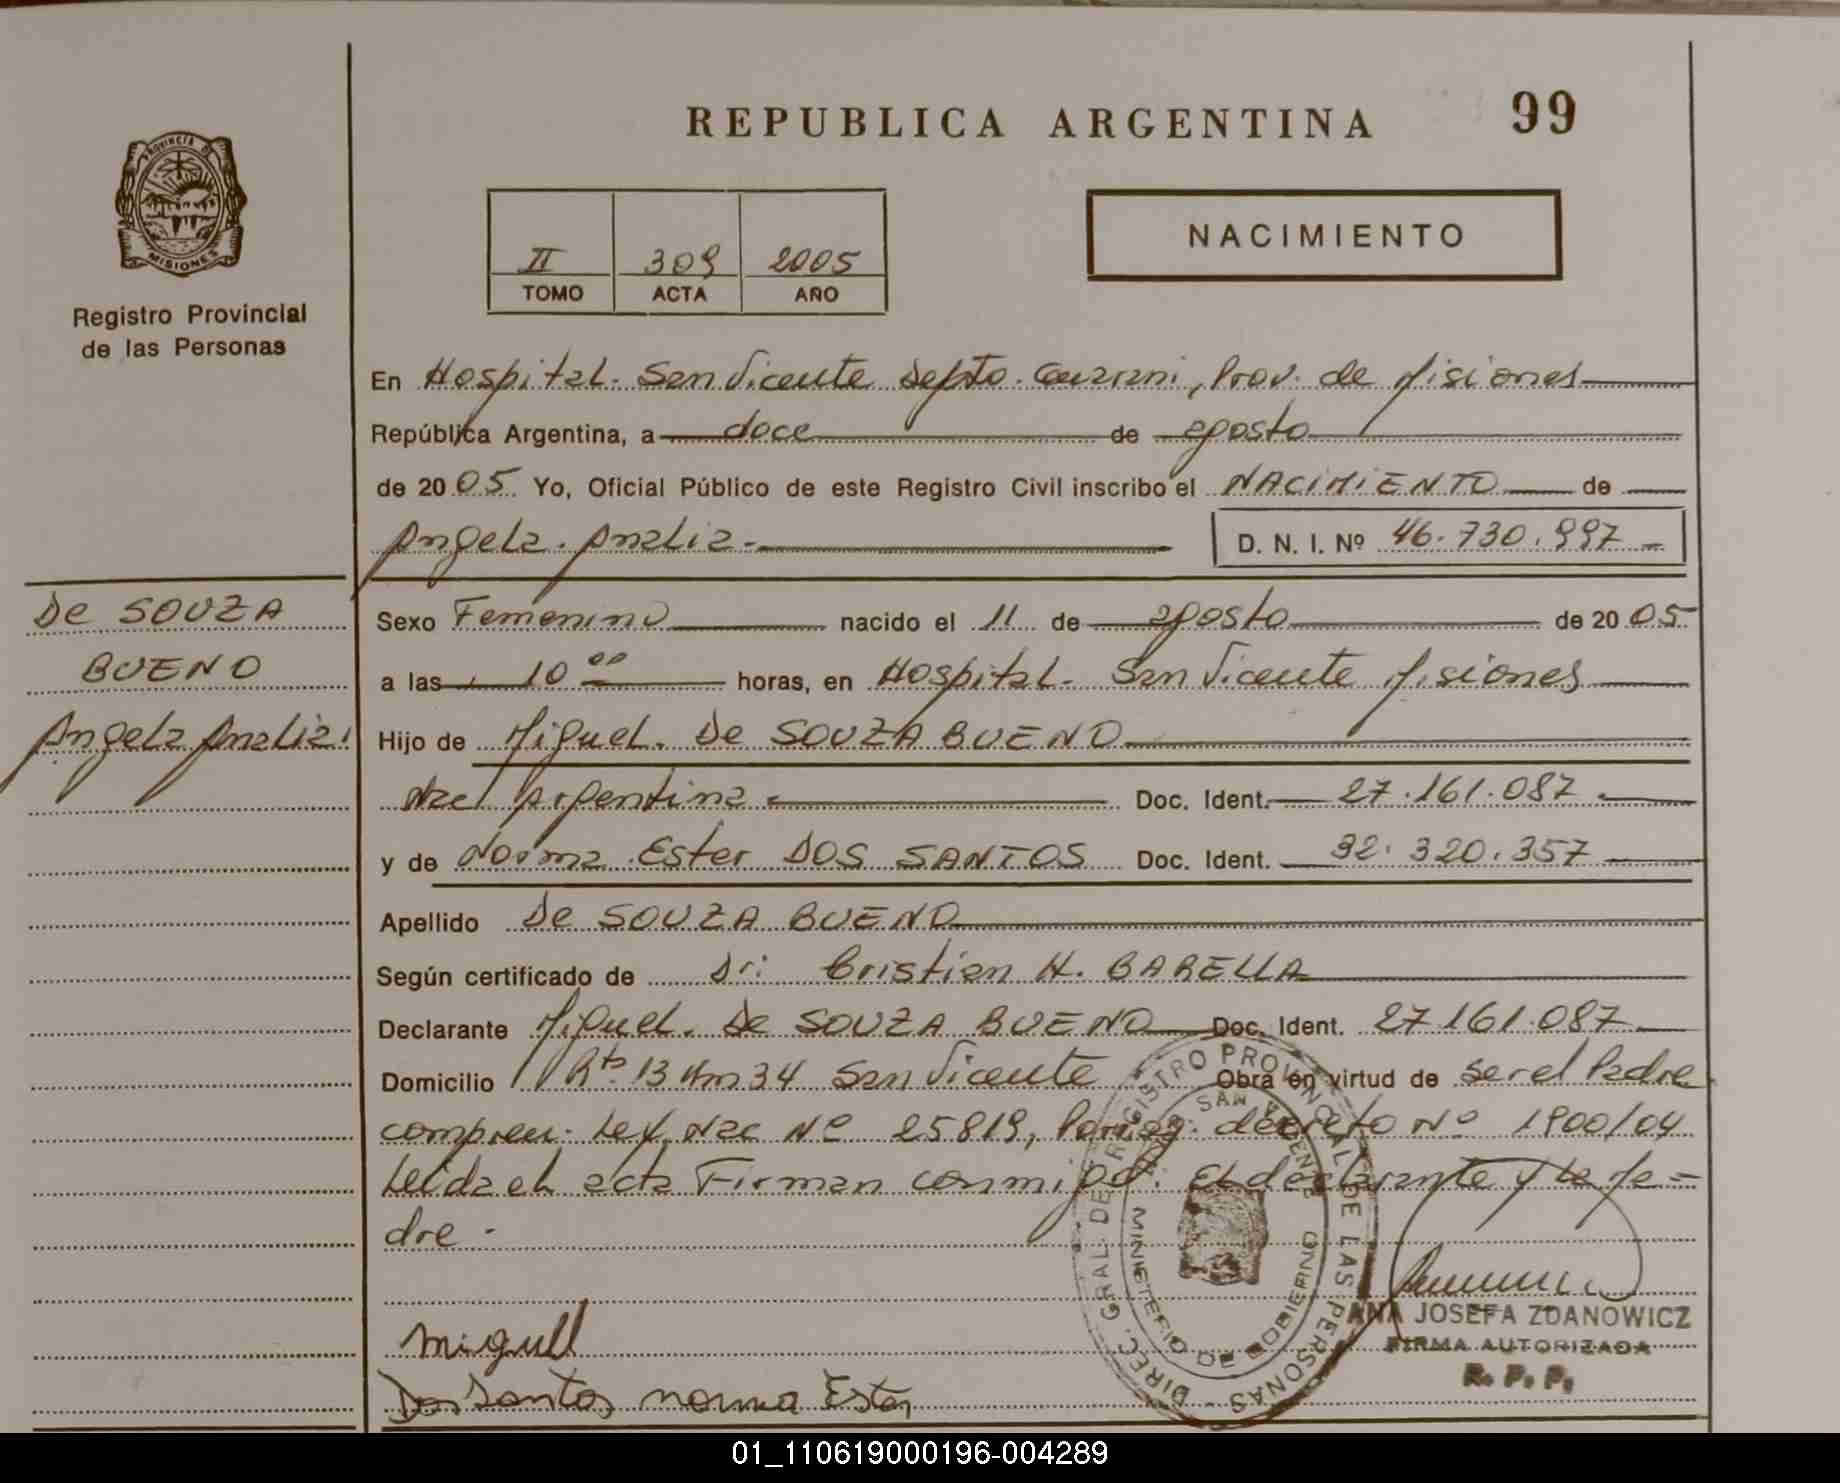 REPUBLICA ARGENTINA 99
PROVINCIA DE
MISIONES
Registro Provincial
de las Personas
II 309 2005
TOMO ACTA AÑO
NACIMIENTO
En Hospital. San Vicente Depto. Guarani, Prov. de Misiones
República Argentina, a doce de agosto
de 2005. Yo, Oficial Público de este Registro Civil inscribo el NACIMIENTO de
Angela. Analia.
D. N. I. Nº 46.730.997
De SOUZA
BUENO
Angela Analia.
Sexo Femenino nacido el 11 de agosto de 2005
a las 10 00 horas, en Hospital. San Vicente Misiones
Hijo de Miguel. De SOUZA BUENO
Nac Argentina Doc. Ident. 27.161.087.
y de Norma Ester DOS SANTOS Doc. Ident. 32.320.357
Apellido De SOUZA BUENO
Según certificado de Dr: Cristian H. BARELLA
Declarante Miguel. De SOUZA BUENO Doc. Ident. 27.161.087
Domicilio Rta 13 Km 34 San Vicente Obra en virtud de ser el Padre
compren. Ley Nac Nº 25819, decreto Nº 1900/04
Leida el acta Firman conmigo. El declarante y la Ma=
dre.
DIREC. GRAL. DE REGISTRO PROVINCIAL DE LAS PERSONAS
SAN VICENTE
MINISTERIO DE GOBIERNO
ANA JOSEFA ZDANOWICZ
FIRMA AUTORIZADA
R. P. P.
Miguel
Dos Santos norma Ester
01_110619000196-004289